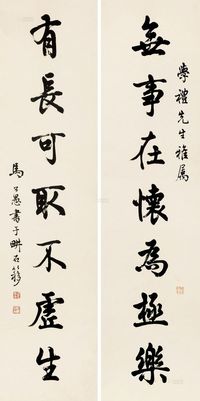 學禮先生雅屬
無事在懷為極樂
有長可取不虛生
馬公愚書于畊石簃